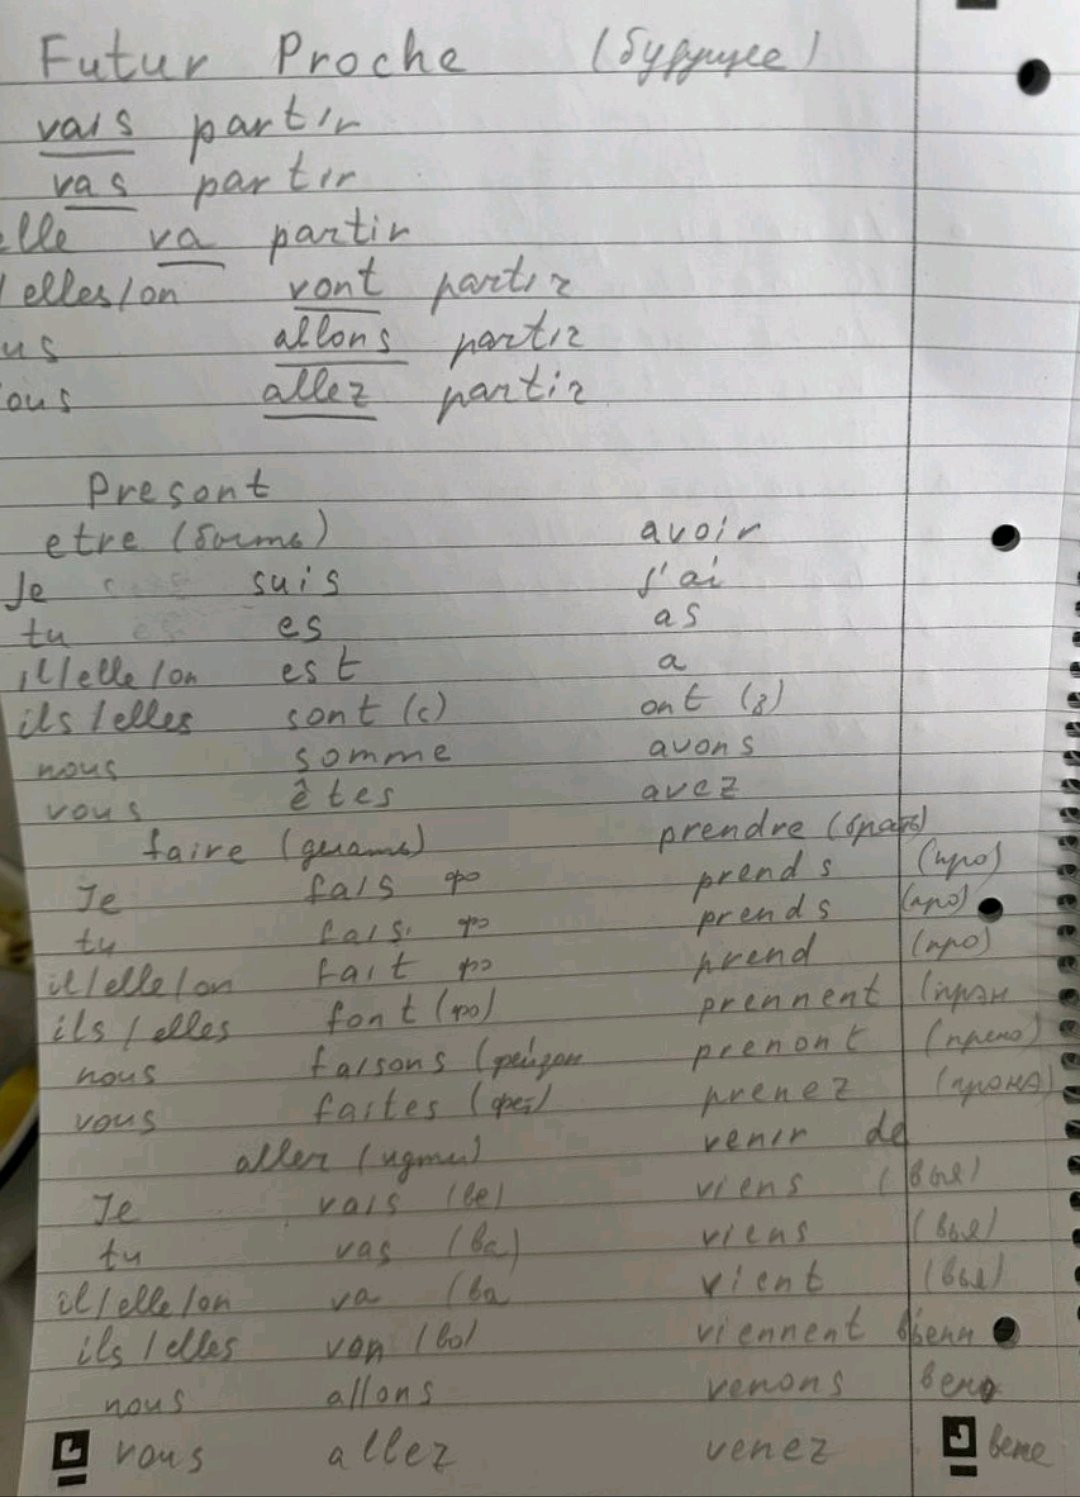 Futur Proche (будущее)
vais partir
vas partir
elle va partir
/ elles/on vont partir
us allons partir
ous allez partir
Present
etre (быть) avoir
Je suis j'ai
tu es as
il/elle/on est a
ils/elles sont (с) ont (з)
nous somme avons
vous êtes avez
faire (делать) prendre (брать)
Je fais фэ prends (про)
tu fais фэ prends (про)
il/elle/on fait фэ prend (про)
ils/elles font (фо) prennent (прэн
nous faisons prenont (прено)
vous faites (фет) prenez
aller (идти) venir de
Je vais (ве) viens (вья)
tu vas (ва) viens (вья)
il/elle/on va (ва vient (вья)
ils/elles von (во) viennent вьенн
nous allons venons вено
vous allez venez вене